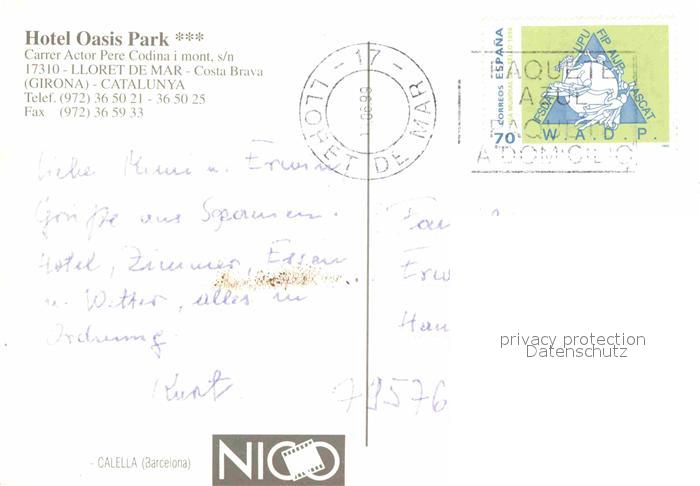 Hotel Oasis Park ***
Carrer Actor Pere Codina i mont, s/n
17310 - LLORET DE MAR - Costa Brava
(GIRONA) - CATALUNYA
Telef. (972) 36 50 21 - 36 50 25
Fax (972) 36 59 33
- 17 -
LLORET DE MAR
CORREOS ESPAÑA
70
UPU FIP AIJP ASCAT IFSDA
W. A. D. P.
PAQUETE
AZUL
PAQUETE
A DOMICILIO
Liebe Mimi u. Erwin
Grüße aus Spanien.
Hotel, Zimmer, Essen
u. Wetter, alles in
Ordnung.
Kurt
Fam
Erw
Hau
79576
privacy protection
Datenschutz
- CALELLA (Barcelona)
NICO